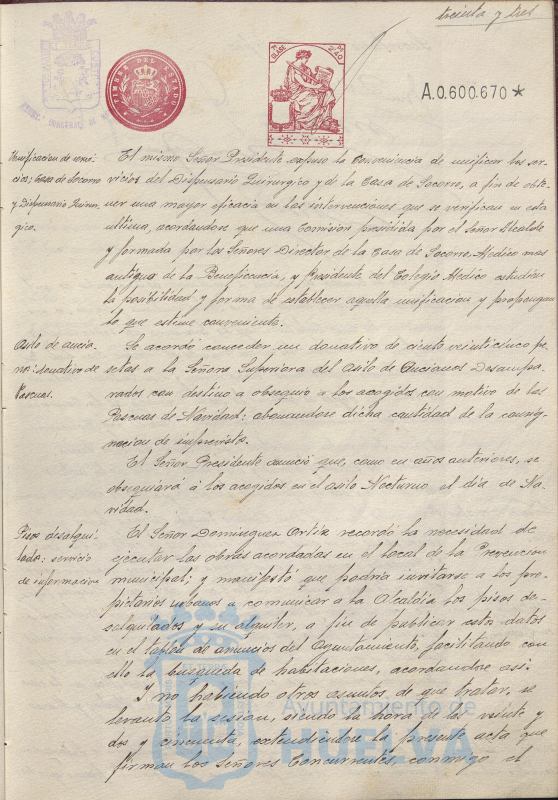 treinta y tres
TIMBRE DEL ESTADO
CLASE
A.0.600.670 *
Unificacion de servi-
cios; Casa de Socorro
y Dispensario Quirur-
gico.
El mismo Señor Presidente expuso la conveniencia de unificar los ser-
vicios del Dispensario Quirurgico y de la Casa de Socorro, a fin de obte-
ner una mayor eficacia en las intervenciones que se verifican en esta
ultima, acordandose que una Comision presidida por el Señor Alcalde
y formada por los Señores Director de la Casa de Socorro, Medico mas
antiguo de la Beneficencia, y Presidente del Colegio Medico estudien
la posibilidad y forma de establecer aquella unificacion y propongan
lo que estime conveniente.
Asilo de ancia-
nos: donativo de
Pascuas.
Se acordó conceder un donativo de ciento veinticinco pe-
setas a la Señora Superiora del Asilo de Ancianos Desampa-
rados con destino a obsequio a los acogidos con motivo de las
Pascuas de Navidad: abonandose dicha cantidad de la consig-
nacion de imprevistos.
El Señor Presidente anunció que, como en años anteriores, se
obsequiará á los acogidos en el Asilo Nocturno el dia de Na-
vidad.
Pisos desalqui-
lados: servicio
de informacion
El Señor Dominguez Ortiz recordó la necesidad de
ejecutar las obras acordadas en el local de la Prevencion
municipal; y manifestó que podria invitarse a los pro-
pietarios urbanos a comunicar a la Alcaldia los pisos de-
salquilados y su alquiler, a fin de publicar estos datos
en el tablon de anuncios del Ayuntamiento, facilitando con
ello la busqueda de habitaciones, acordandose asi.
Y no habiendo otros asuntos de que tratar, se
levantó la sesion, siendo la hora de las veinte y
dos y cincuenta, extendiendose la presente acta que
firman los Señores Concurrentes, conmigo el
Ayuntamiento de
HUELVA